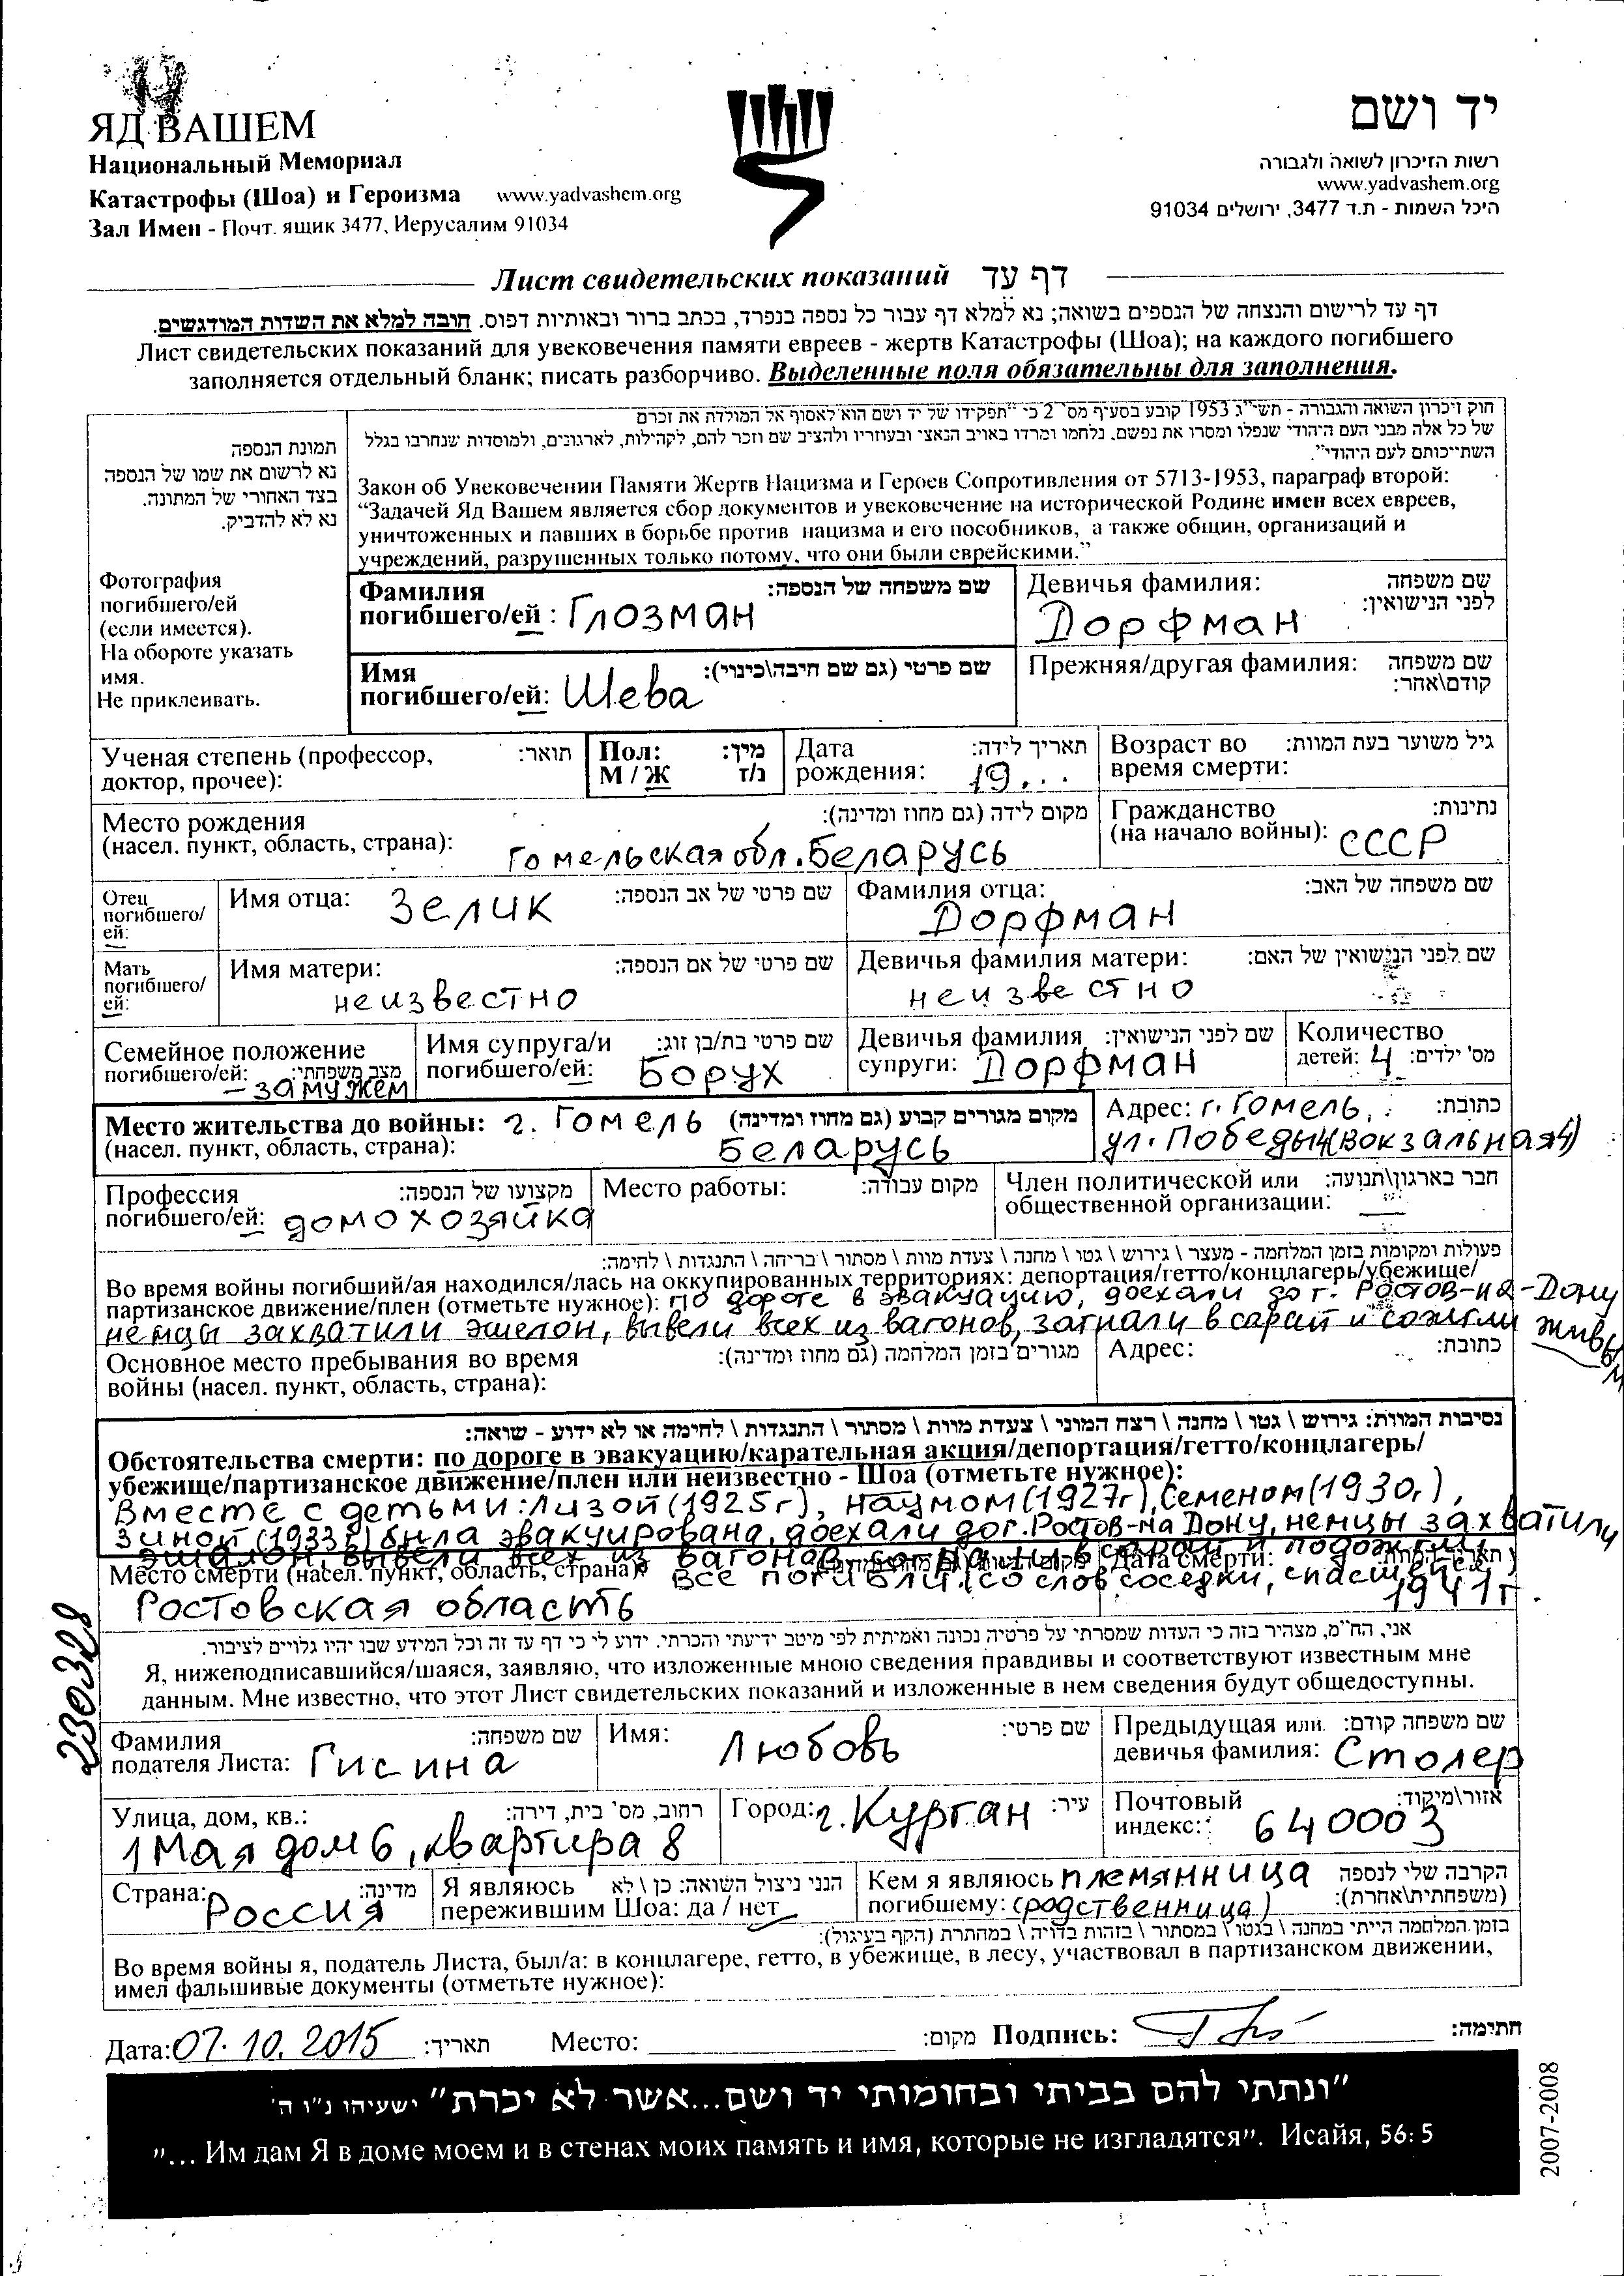 ЯД ВАШЕМ
Национальный Мемориал
Катастрофы (Шоа) и Героизма www.yadvashem.org
Зал Имен - Почт. ящик 3477, Иерусалим 91034
יד ושם
רשות הזיכרון לשואה ולגבורה
www.yadvashem.org
היכל השמות - ת.ד 3477, ירושלים 91034
Лист свидетельских показаний דף עד
דף עד לרישום והנצחה של הנספים בשואה; נא למלא דף עבור כל נספה בנפרד, בכתב ברור ובאותיות דפוס. חובה למלא את השדות המודגשים.
Лист свидетельских показаний для увековечения памяти евреев - жертв Катастрофы (Шоа); на каждого погибшего
заполняется отдельный бланк; писать разборчиво. Выделенные поля обязательны для заполнения.
תמונת הנספה
נא לרשום את שמו של הנספה
בצד האחורי של התמונה.
נא לא להדביק.
Фотография
погибшего/ей
(если имеется).
На обороте указать
имя.
Не приклеивать.
חוק זיכרון השואה והגבורה - תשי"ג 1953 קובע בסעיף מס' 2 כי "תפקידו של יד ושם הוא לאסוף אל המולדת את זכרם
של כל אלה מבני העם היהודי שנפלו ומסרו את נפשם, נלחמו ומרדו באויב הנאצי ובעוזריו ולהציב שם וזכר להם, לקהילות, לארגונים, ולמוסדות שנחרבו בגלל
השתייכותם לעם היהודי".
Закон об Увековечении Памяти Жертв Нацизма и Героев Сопротивления от 5713-1953, параграф второй:
“Задачей Яд Вашем является сбор документов и увековечение на исторической Родине имен всех евреев,
уничтоженных и павших в борьбе против нацизма и его пособников, а также общин, организаций и
учреждений, разрушенных только потому, что они были еврейскими.”
Фамилия שם משפחה של הנספה:
погибшего/ей : Глозман
Девичья фамилия: שם משפחה
לפני הנישואין:
Дорфман
Имя שם פרטי (גם שם חיבה\כינוי):
погибшего/ей: Шева
Прежняя/другая фамилия: שם משפחה
קודם\אחר:
Ученая степень (профессор, תואר:
доктор, прочее):
Пол: מין:
М / Ж נ/ז
Дата תאריך לידה:
рождения: 19...
Возраст во גיל משוער בעת המוות:
время смерти:
Место рождения מקום לידה (גם מחוז ומדינה):
(насел. пункт, область, страна): Гомельская обл. Беларусь
Гражданство נתינות:
(на начало войны): СССР
Отец
погибшего/
ей:
Имя отца: Зелик שם פרטי של אב הנספה:
Фамилия отца: שם משפחה של האב:
Дорфман
Мать
погибшего/
ей:
Имя матери: שם פרטי של אם הנספה:
неизвестно
Девичья фамилия матери: שם לפני הנישואין של האם:
неизвестно
Семейное положение
погибшего/ей: מצב משפחתי:
- замужем
Имя супруга/и שם פרטי בת/בן זוג:
погибшего/ей: Борух
Девичья фамилия שם לפני הנישואין:
супруги: Дорфман
Количество
детей: 4 מס' ילדים:
Место жительства до войны: г. Гомель מקום מגורים קבוע (גם מחוז ומדינה)
(насел. пункт, область, страна): Беларусь
Адрес: г. Гомель, כתובת:
ул. Победы 4 (Вокзальная 4)
Профессия מקצועו של הנספה:
погибшего/ей: домохозяйка
Место работы: מקום עבודה:
Член политической или חבר בארגון\תנועה:
общественной организации: —
פעולות ומקומות בזמן המלחמה - מעצר \ גירוש \ גטו \ מחנה \ צעדת מוות \ מסתור \ בריחה \ התנגדות \ לחימה:
Во время войны погибший/ая находился/лась на оккупированных территориях: депортация/гетто/концлагерь/убежище/
партизанское движение/плен (отметьте нужное): по дороге в эвакуацию, доехали до г. Ростов-на-Дону
немцы захватили эшелон, вывели всех из вагонов, загнали в сарай и сожгли живьём
Основное место пребывания во время מגורים בזמן המלחמה (גם מחוז ומדינה):
войны (насел. пункт, область, страна):
Адрес: כתובת:
נסיבות המוות: גירוש \ גטו \ מחנה \ רצח המוני \ צעדת מוות \ מסתור \ התנגדות \ לחימה או לא ידוע - שואה:
Обстоятельства смерти: по дороге в эвакуацию/карательная акция/депортация/гетто/концлагерь/
убежище/партизанское движение/плен или неизвестно - Шоа (отметьте нужное):
Вместе с детьми: Лизой (1925г), Наумом (1927г), Семеном (1930г),
Зиной (1933г) была эвакуирована, доехали до г. Ростов-на Дону, немцы захватили
эшалон, вывели всех из вагонов, согнали в сарай и подожгли
Место смерти (насел. пункт, область, страна): Все погибли. (со слов соседки, спасшейся)
Ростовская область
Дата смерти:
1941г
230328
אני, הח"מ, מצהיר בזה כי העדות שמסרתי על פרטיה נכונה ואמיתית לפי מיטב ידיעתי והכרתי. ידוע לי כי דף עד זה וכל המידע שבו יהיו גלויים לציבור.
Я, нижеподписавшийся/шаяся, заявляю, что изложенные мною сведения правдивы и соответствуют известным мне
данным. Мне известно, что этот Лист свидетельских показаний и изложенные в нем сведения будут общедоступны.
Фамилия שם משפחה:
подателя Листа: Гисина
Имя: Любовь שם פרטי:
Предыдущая или שם משפחה קודם:
девичья фамилия: Столер
Улица, дом, кв.: רחוב, מס' בית, דירה:
1 Мая дом 6, квартира 8
Город: г. Курган עיר:
Почтовый אזור\מיקוד:
индекс: 640003
Страна: Россия מדינה:
Я являюсь הנני ניצול השואה: כן \ לא
пережившим Шоа: да / нет
Кем я являюсь племянница הקרבה שלי לנספה
погибшему: (родственница) (משפחתית\אחרת):
בזמן המלחמה הייתי במחנה \ בגטו \ במסתור \ בזהות בדויה \ במחתרת (הקף בעיגול):
Во время войны я, податель Листа, был/а: в концлагере, гетто, в убежище, в лесу, участвовал в партизанском движении,
имел фальшивые документы (отметьте нужное):
Дата: 07.10.2015 תאריך: Место: מקום: Подпись: חתימה:
"ונתתי להם בביתי ובחומותי יד ושם...אשר לא יכרת" ישעיהו נ"ו ה'
"... Им дам Я в доме моем и в стенах моих память и имя, которые не изгладятся". Исайя, 56:5
2007-2008